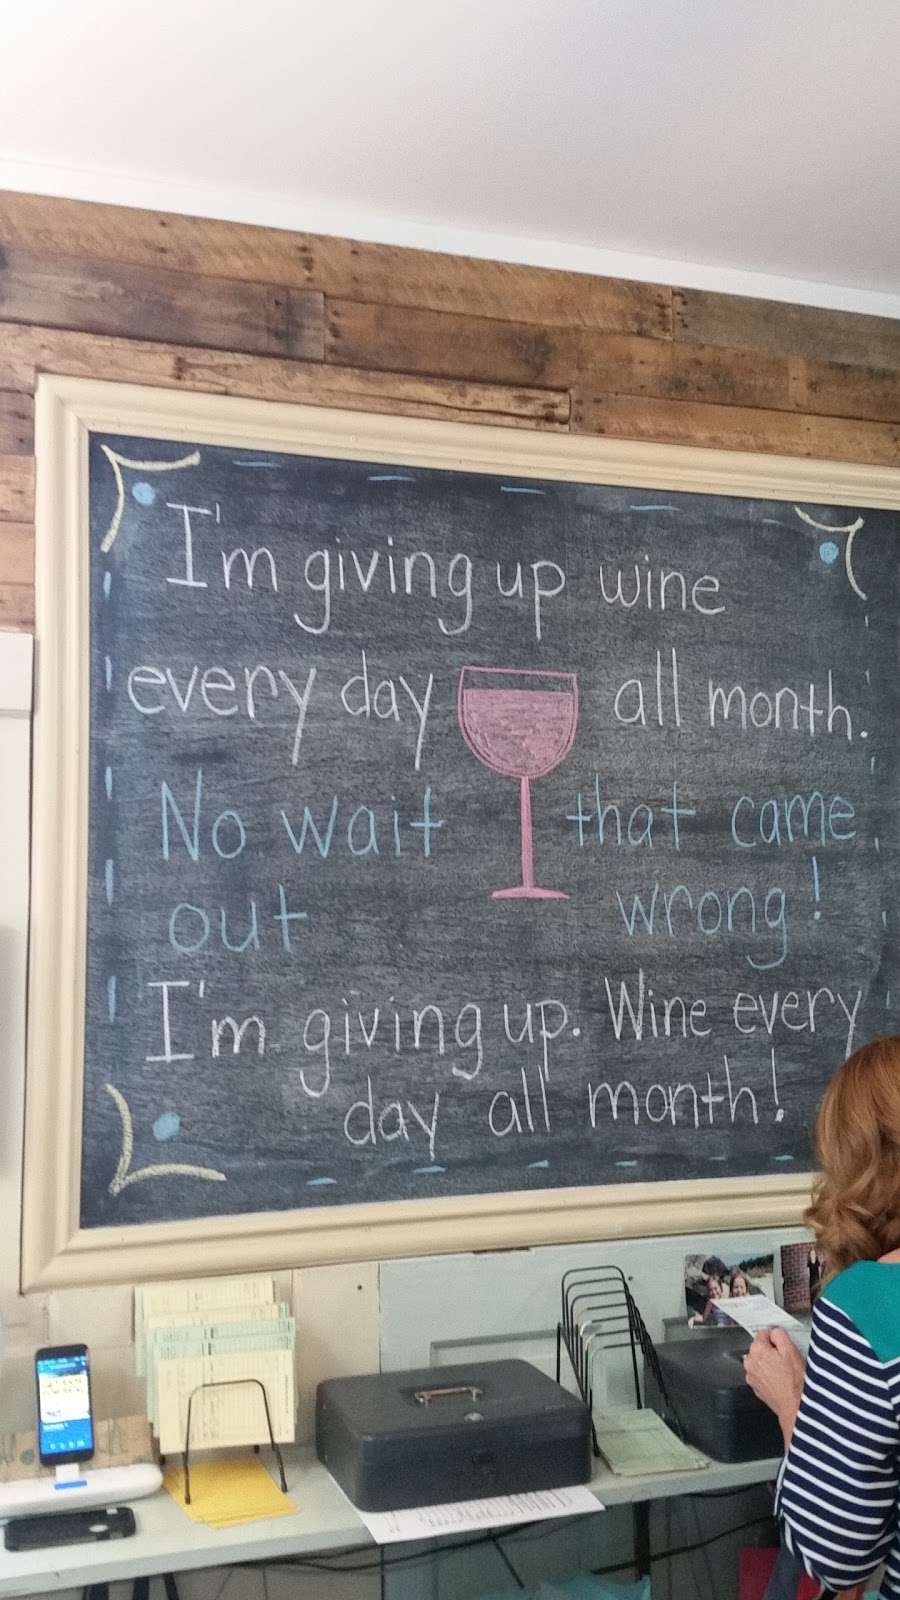 I'm giving up wine
every day all month.
No wait that came
out wrong!
I'm giving up. Wine every
day all month!